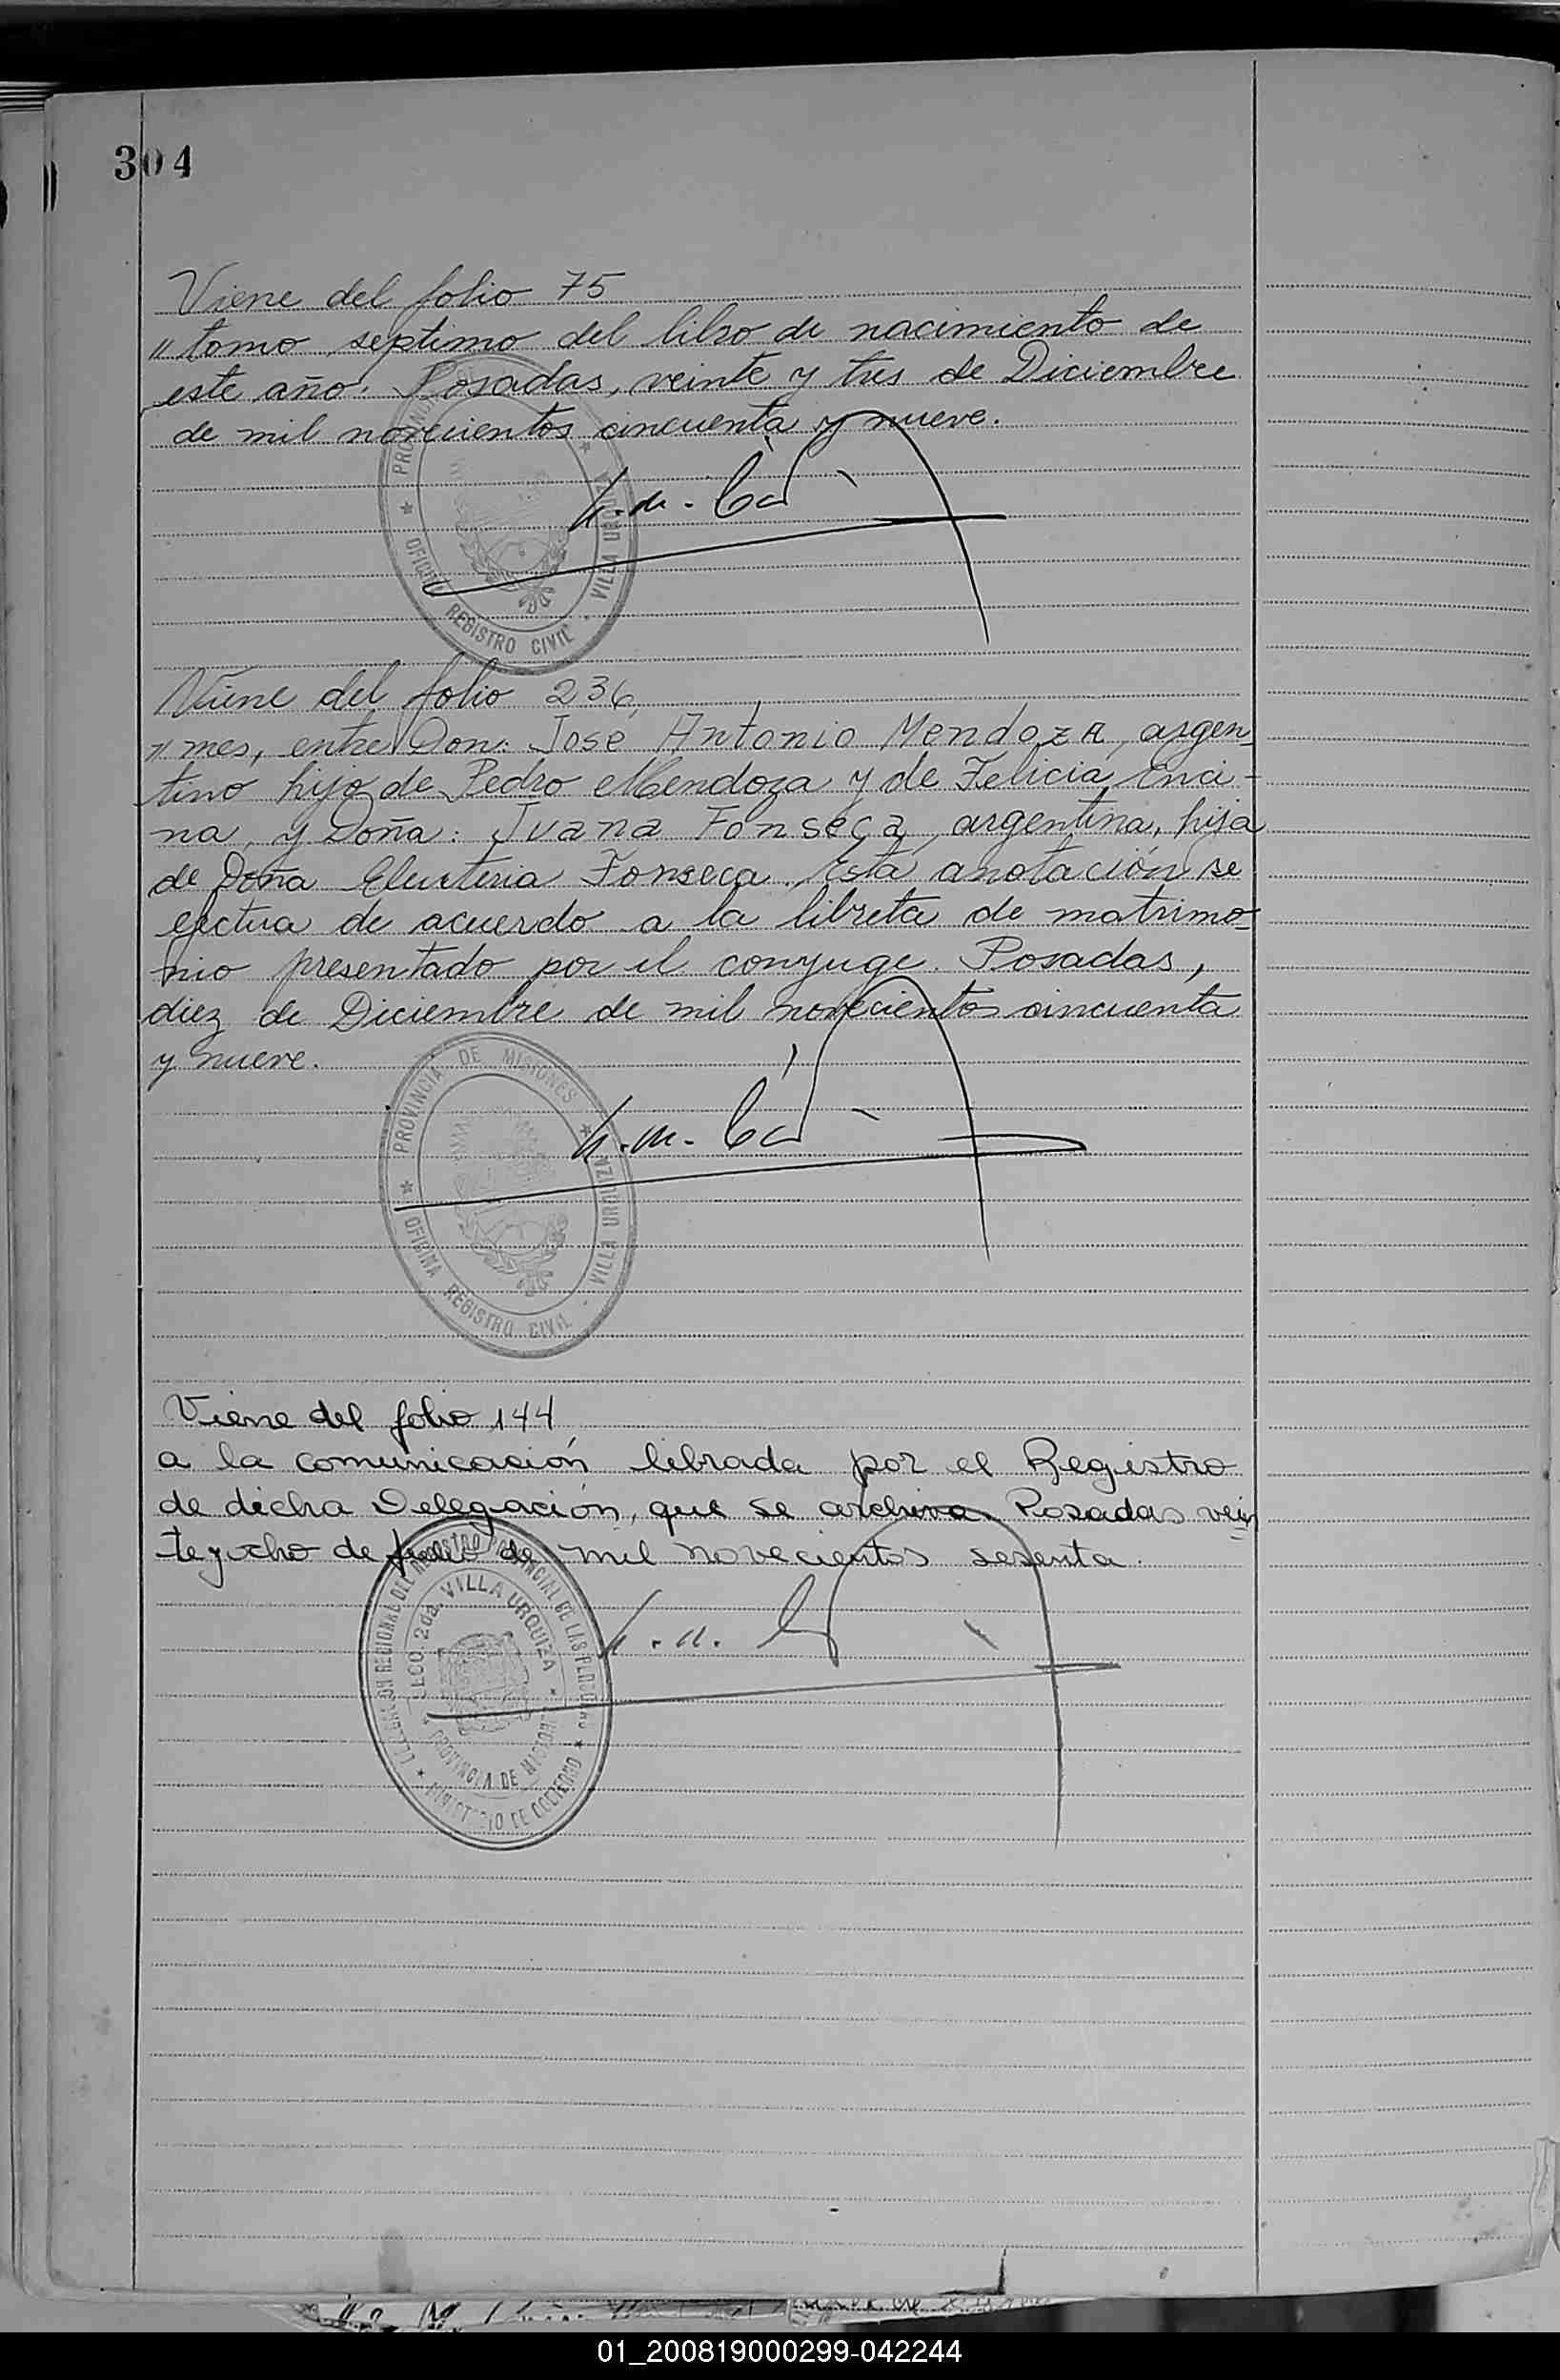 304
Viene del folio 75
" tomo septimo del libro de nacimiento de
este año. Posadas, veinte y tres de Diciembre
de mil novecientos cincuenta y nueve.
PROVINCIA
VILLA URQUIZA
OFICINA REGISTRO CIVIL
Viene del folio 236,
" mes, entre Don: José Antonio Mendoza, argen-
tino hijo de Pedro Mendoza y de Felicia Enci-
na, y Doña: Juana Fonseca, argentina, hija
de Doña Eleuteria Fonseca. Esta anotación se
efectua de acuerdo a la libreta de matrimo-
nio presentado por el conyuge. Posadas,
diez de Diciembre de mil novecientos cincuenta
y nueve.
PROVINCIA DE MISIONES
VILLA URQUIZA
OFICINA REGISTRO CIVIL
Viene del folio 144
a la comunicación librada por el Registro
de dicha Delegación, que se archiva Posadas vein
teyocho de de mil novecientos sesenta.
DELEGACION REGIONAL DEL REGISTRO PROVINCIAL DE LAS PERSONAS
SECC. 2da. VILLA URQUIZA
PROVINCIA DE MISIONES
MINISTERIO DE GOBIERNO
01_200819000299-042244